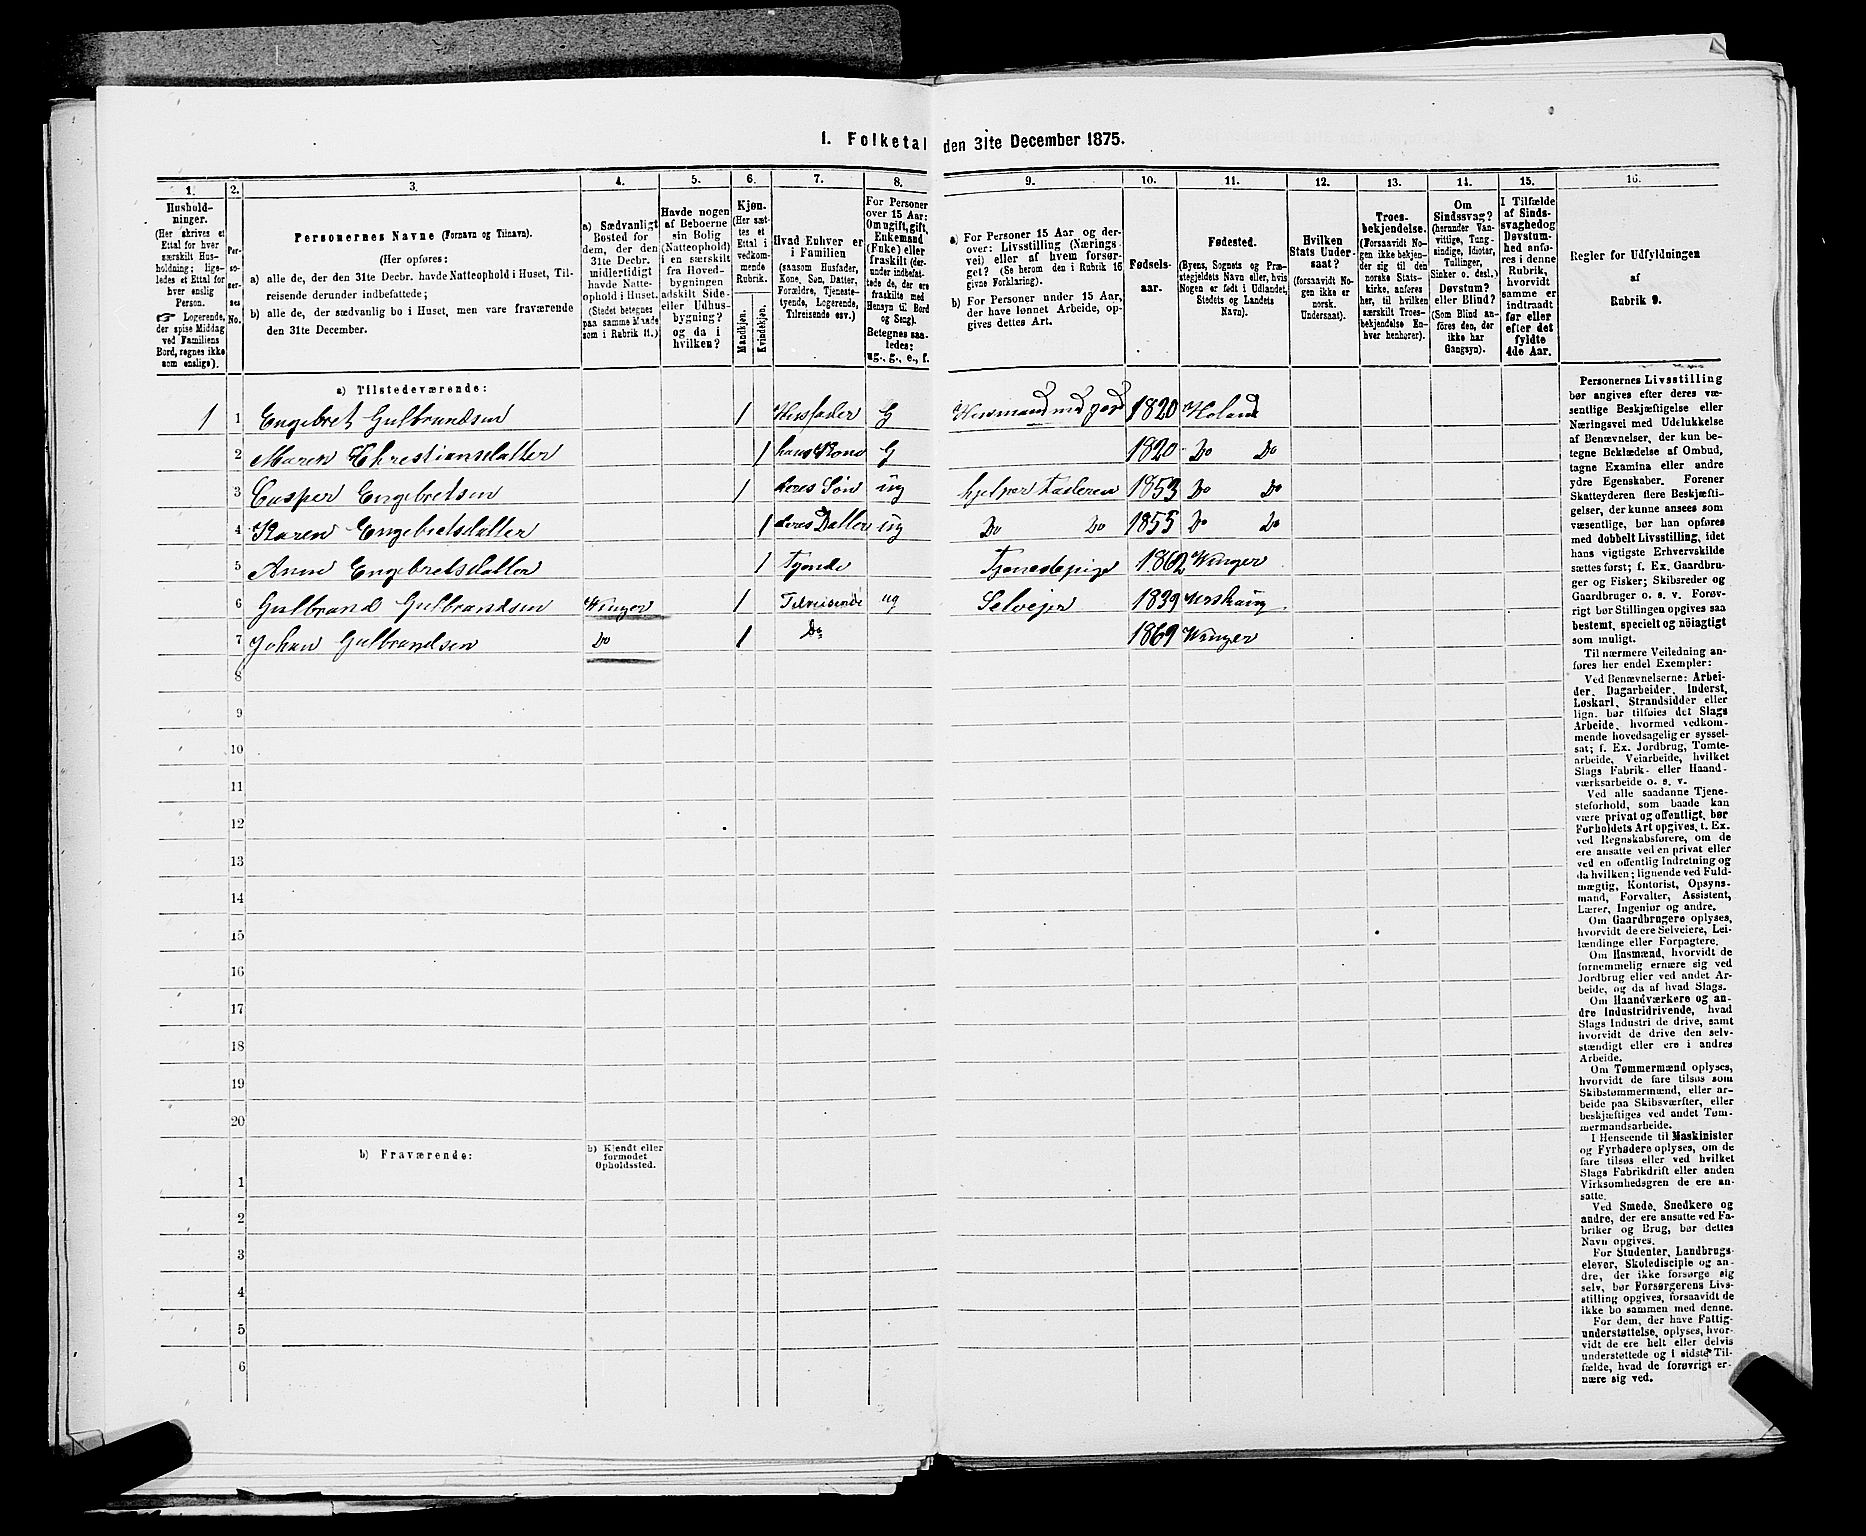 1. Folketal den 31te December 1875.
1. 2. 3. 4. 5. 6. 7. 8. 9. 10. 11. 12. 13. 14. 15. 16.
Hushold-
ninger.
(Her skrives et
Ettal for hver
særskilt Hus-
holdning; lige-
ledes et Ettal for
hver enslig
Person.
☞ Logerende,
der spise Middag
ved Familiens
Bord, regnes ikke
som enslige).
Per-
so-
ner-
nes
No.
Personernes Navne (Fornavn og Tilnavn).
(Her opføres:
a) alle de, der den 31te Decbr. havde Natteophold i Huset, Til-
reisende derunder indbefattede;
b) alle de, der sædvanlig bo i Huset, men vare fraværende
den 31te December.
a) Sædvanligt
Bosted for
dem, der den
31te Decbr.
midlertidigt
havde Natte-
ophold i Huset.
(Stedet betegnes
paa samme Maade
som i Rubrik 11.)
Havde nogen
af Beboerne
sin Bolig
(Natteophold)
i en særskilt
fra Hoved-
bygningen
adskilt Side-
eller Udhus-
bygning?
og da i
hvilken?
Kjøn.
(Her sæt-
tes et
Ettal i
vedkom-
mende
Rubrik.
Mandkjøn.
Kvindekjøn.
Hvad Enhver er
i Familien
(saasom Husfader,
Kone, Søn, Datter,
Forældre, Tjeneste-
tyende, Logerende,
Tilreisende osv.)
For Personer
over 15 Aar:
Om ugift, gift,
Enkemand
(Enke) eller
fraskilt (der-
under indbefat-
tede de, der ere
fraskilte med
Hensyn til Bord
og Seng).
Betegnes saa-
ledes:
ug., g., e., f.
a) For Personer 15 Aar og der-
over: Livsstilling (Nærings-
vei) eller af hvem forsør-
get? (Se herom den i Rubrik 16
givne Forklaring).
b) For Personer under 15 Aar,
der have lønnet Arbeide, op-
gives dettes Art.
Fødsels-
aar.
Fødested.
(Byens, Sognets og Præ-
stegjeldets Navn eller, hvis
Nogen er født i Udlandet,
Stedets og Landets
Navn).
Hvilken
Stats Under-
saat?
(forsaavidt No-
gen ikke er
norsk
Undersaat).
Troes-
bekjendelse.
(Forsaavidt No-
gen ikke bekjen-
der sig til den
norske Stats-
kirke, anføres
her, til hvilken
særskilt Troes-
bekjendelse En-
hver henhører).
Om
Sindssvag?
(herunder Van-
vittige, Tung-
sindige, Idioter,
Tullinger,
Sinker o. desl.)
Døvstum?
eller Blind?
(Som Blind an-
føres den, der
ikke har
Gangsyn).
I Tilfælde
af Sinds-
svaghed og
Døvstum-
hed anfø-
res i denne
Rubrik,
hvorvidt
samme er
indtraadt
før eller
efter det
fyldte
4de Aar.
Regler for Udfyldningen
af
Rubrik 9.
a) Tilstedeværende:
1 1 Engebret Gulbrandsen 1 Husfader G Husmand med jord 1820 Holand
2 Maren Christiansdatter 1 hans Kone G 1820 Do Do
3 Casper Engebretsen 1 deres Søn ug hjelper Faderen 1853 Do Do
4 Karen Engebretsdatter 1 deres Datter ug Do Do 1855 Do Do
5 Anne Engebretsdatter 1 Tjende Tjenestepige 1862 Winger
6 Gulbrand Gulbrandsen Winger 1 Tilreisende ug Selvejer 1839
7 Johan Gulbrandsen Do 1 Do 1869 Winger
8
9
10
11
12
13
14
15
16
17
18
19
20
b) Fraværende:
b) Kjendt eller
formodet
Opholdssted.
1
2
3
4
5
6
Personernes Livsstilling
bør angives efter deres væ-
sentlige Beskjæftigelse eller
Næringsvei med Udelukkelse
af Benævnelser, der kun be-
tegne Beklædelse af Ombud,
tagne Examina eller andre
ydre Egenskaber. Forener
Skatteyderen flere Beskjæfti-
gelser, der kunne ansees som
væsentlige, bør han opføres
med dobbelt Livsstilling, idet
hans vigtigste Erhvervskilde
sættes først; f. Ex. Gaardbru-
ger og Fisker; Skibsreder og
Gaardbruger o. s. v. Forøv-
rigt bør Stillingen opgives saa
bestemt, specielt og nøiagtigt
som muligt.
Til nærmere Veiledning an-
føres her endel Exempler:
Ved Benævnelserne: Arbei-
der, Dagarbeider, Inderst,
Løskarl, Strandsidder eller
lign. bør tilføies det Slags
Arbeide, hvormed vedkom-
mende hovedsagelig er syssel-
sat; f. Ex. Jordbrug, Tomte-
arbeide, Veiarbeide, hvilket
Slags Fabrik- eller Haand-
værksarbeide o. s. v.
Ved alle saadanne Tjene-
steforhold, som baade kan
være privat og offentligt, bør
Forholdets Art opgives, f. Ex.
ved Regnskabsførere, om de
ere ansatte ved en privat eller
ved en offentlig Indretning og
da hvilken; lignende ved Fuld-
mægtig, Kontorist, Opsyns-
mand, Forvalter, Assistent,
Lærer, Ingeniør og andre.
Om Gaardbrugere oplyses,
hvorvidt de ere Selveiere, Lei-
lændinge eller Forpagtere.
Om Husmænd, hvorvidt de
fornemmelig ernære sig ved
Jordbrug eller ved andet Ar-
beide, og da af hvad Slags.
Om Haandværkere og an-
dre Industridrivende, hvad
Slags Industri de drive, samt
hvorvidt de drive den selv-
stændigt eller ere i andres
Arbeide.
Om Tømmermænd oplyses,
hvorvidt de fare tilsøs som
Skibstømmermænd, eller ar-
beide paa Skibsværfter, eller
beskjæftiges ved andet Tøm-
mermandsarbeide.
I Henseende til Maskinister
og Fyrbødere oplyses, om de
fare tilsøs eller ved hvilket
Slags Fabrikdrift eller anden
Virksomhedsgren de ere an-
satte.
Ved Smede, Snedkere og
andre, der ere ansatte ved Fa-
briker og Brug, bør dettes
Navn opgives.
For Studenter, Landbrugs-
elever, Skoledisciple og an-
dre, der ikke forsørge sig
selv, bør Forsørgerens Livs-
stilling opgives, forsaavidt de
ikke bo sammen med denne.
For dem, der have Fattig-
understøttelse, oplyses, hvor-
vidt de ere helt eller delvis
understøttede og i sidste Til-
fælde, hvad de forøvrigt er-
nære sig ved.